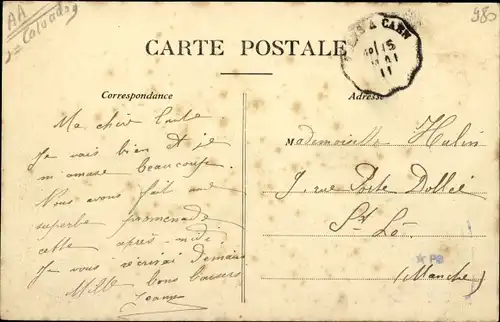 AA
Calvados
980
CARTE POSTALE
A CAEN
15
11
Correspondance
Adresse
Ma chère tante
Je vais bien et je
m'amuse beaucoup.
Nous avons fait une
superbe promenade
cette après-midi.
Je vous écrirai demain
Mille bons baisers
Jeanne
Mademoiselle Hulin
7, rue Porte Dollée
St Lô
(Manche)